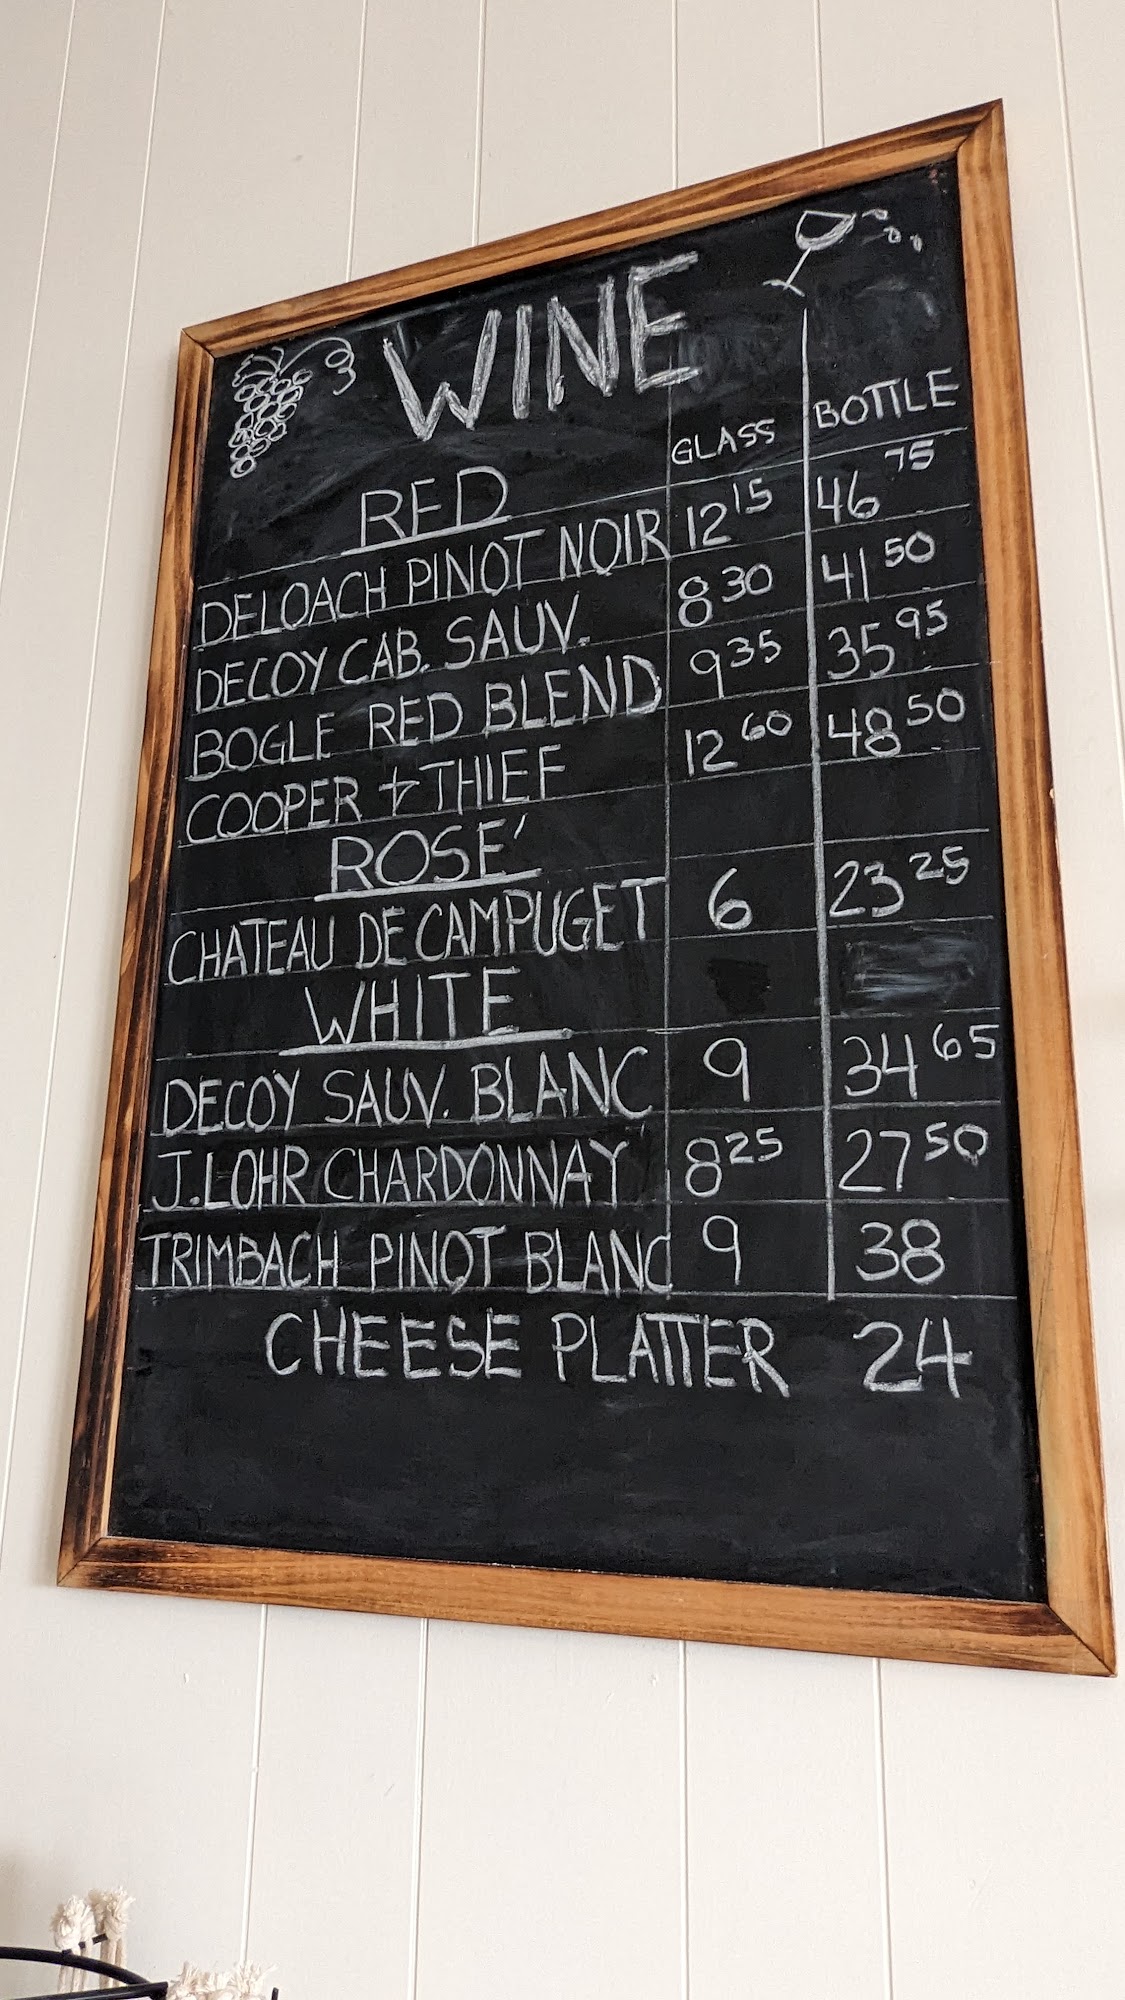 WINE
GLASS BOTTLE
RED
DELOACH PINOT NOIR 12 15 46 75
DECOY CAB. SAUV. 8 30 41 50
BOGLE RED BLEND 9 35 35 95
COOPER + THIEF 12 60 48 50
ROSE'
CHATEAU DE CAMPUGET 6 23 25
WHITE
DECOY SAUV. BLANC 9 34 65
J. LOHR CHARDONNAY 8 25 27 50
TRIMBACH PINOT BLANC 9 38
CHEESE PLATTER 24